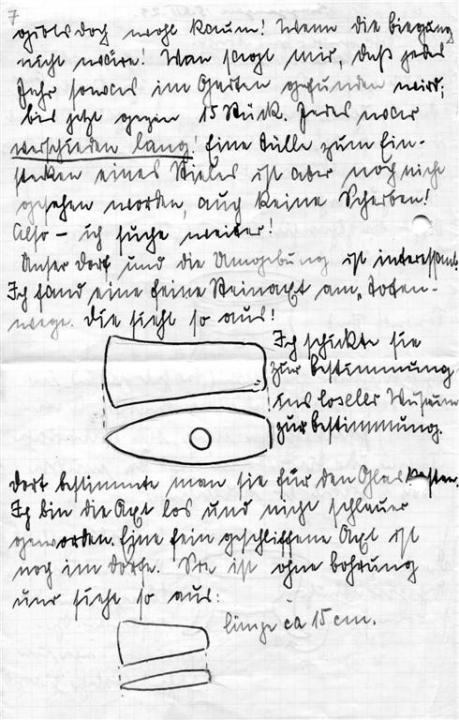 7
gibts doch wohl kaum! Wenn die biegung
nicht wäre! Man sagt mir, daß jedes
Jahr sowas im Garten gefunden wird;
bis jetzt gegen 15 Stück. Jedes war
verschieden lang! Eine Tülle zum Ein-
stecken eines Stieles ist aber noch nie
gesehen worden, auch keine Scherben!
Also - ich suche weiter!
Unser Dorf und die Umgebung ist interessant.
Ich fand eine feine Steinaxt am „Toten-
wege. Die sieht so aus!
Ich schickte sie
zur bestimmung
ins Museum
zur bestimmung.
Dort bestimmte man sie für den Glaskasten.
Ich bin die Axt los und nicht schlauer
geworden. Eine fein geschliffene Axt ist
noch im Dorfe. Sie ist ohne bohrung
und sieht so aus:
länge ca 15 cm.